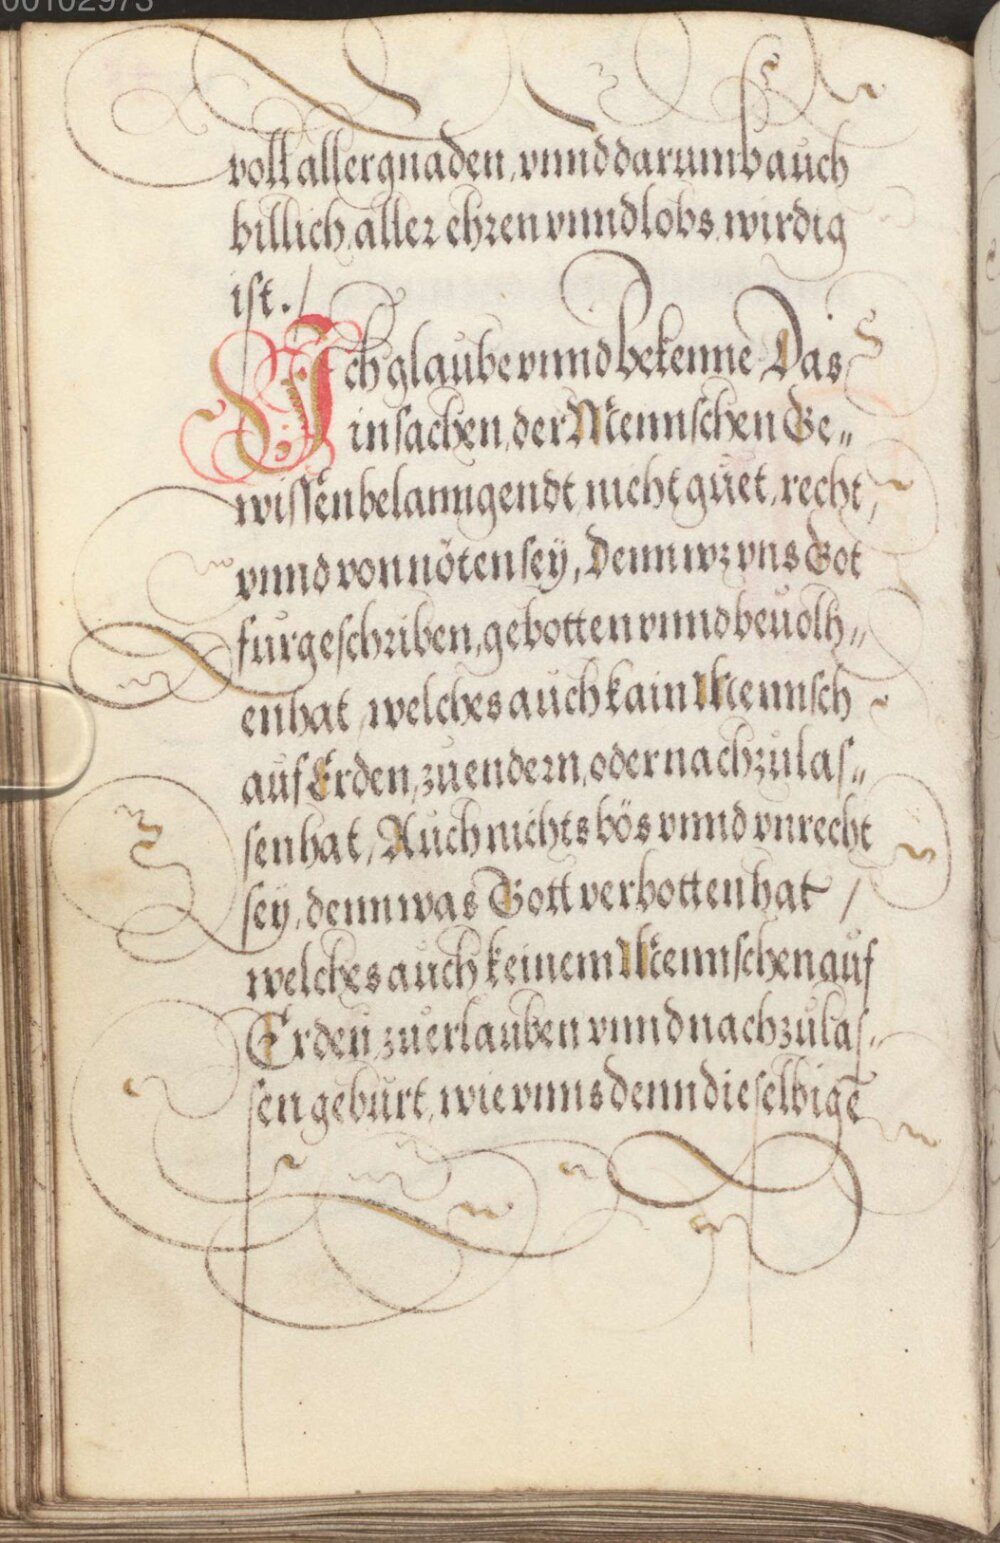 00102973
voll aller gnaden, vnnd darumb auch
billich, aller ehren vnnd lobs, wirdig
ist.
Ich glaube vnnd bekenne Das
in sachen, der Mennschen Ge„
wissen belanngendt, nicht guet, recht,
vnnd von nöten seÿ, Denn wz vns Got
fürgeschriben, gebotten vnnd beuolh„
en hat, welches auch kain Mennsch
auf Erden, zu endern, oder nachzulas„
sen hat, Auch nichts bös vnnd vnrecht
seÿ, denn was Gott verbotten hat /
welches auch keinem Mennschen auf
Erden, zu erlauben vnnd nachzulas„
sen gebürt, wie vnns denn dieselbige